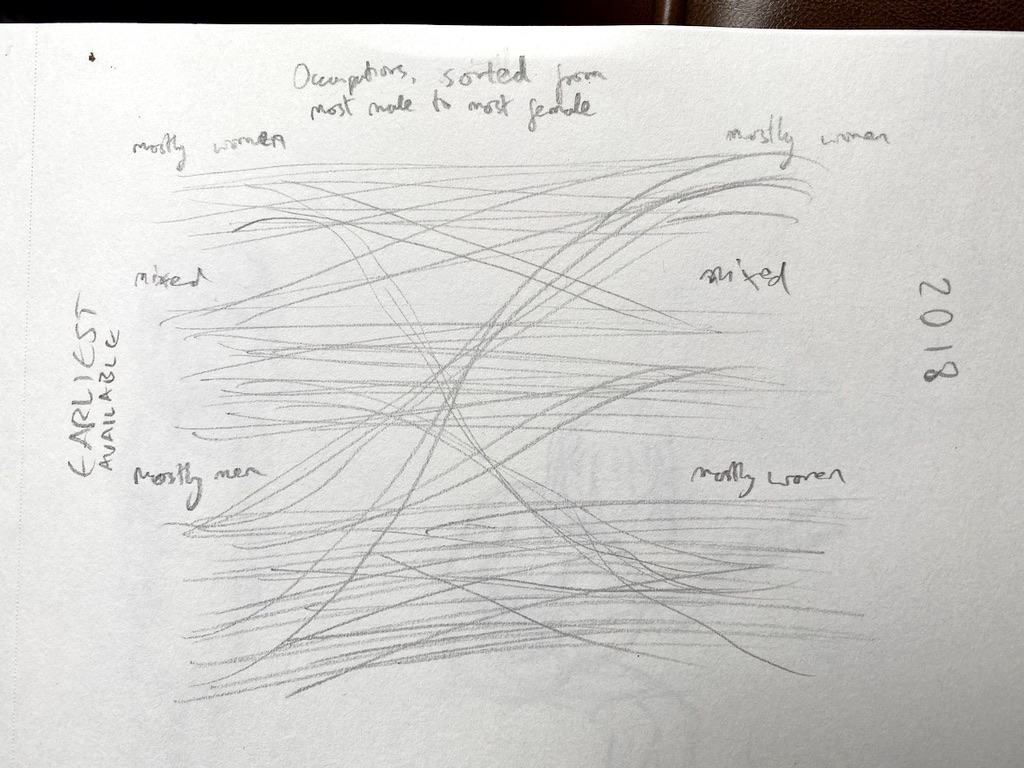 Occupations, sorted from
most male to most female
mostly women
mostly women
mixed
mixed
EARLIEST
AVAILABLE
2018
mostly men
mostly women